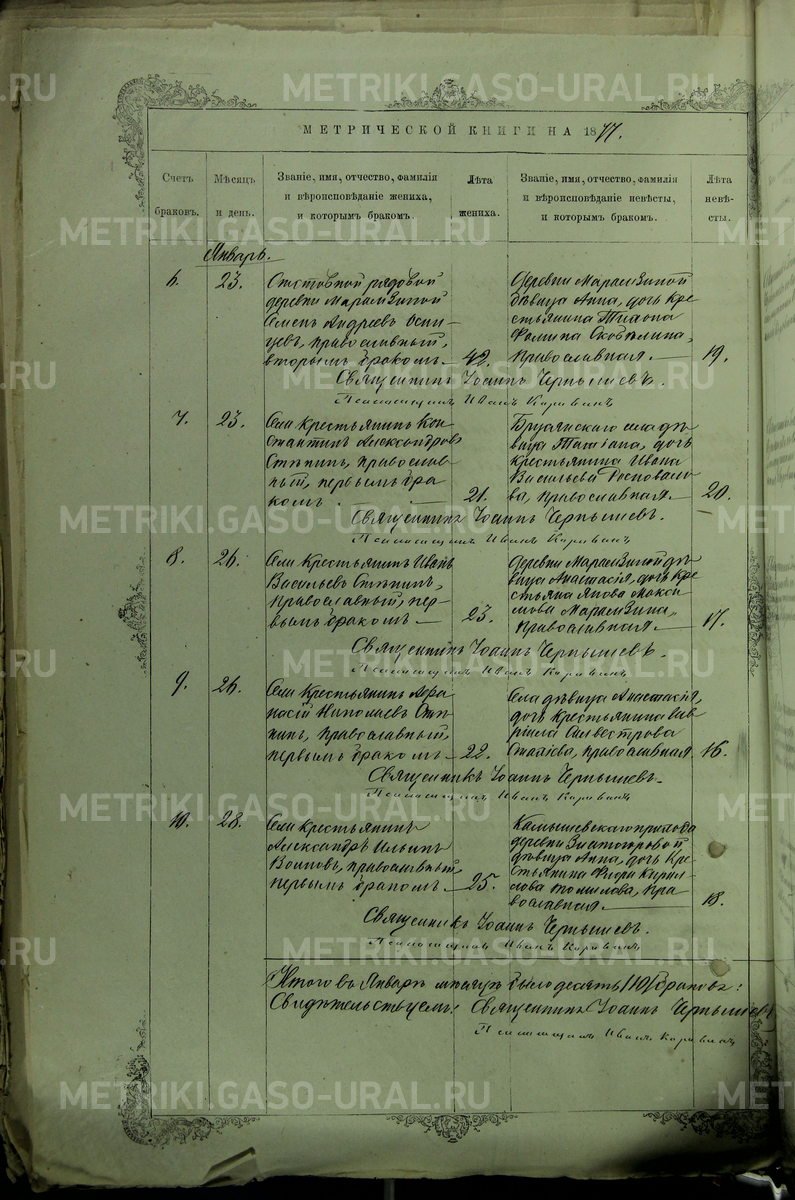 МЕТРИЧЕСКОЙ КНИГИ НА 1877.
Счетъ браковъ.
Мѣсяцъ и день.
Званіе, имя, отчество, фамилія
и вѣроисповѣданіе жениха,
и которымъ бракомъ.
Лѣта жениха.
Званіе, имя, отчество, фамилія
и вѣроисповѣданіе невѣсты,
и которымъ бракомъ.
Лѣта невѣсты.
Январь.
6. 23.
рядовой
деревни Марамзиной
Семенъ Андреевъ
православный,
вторымъ бракомъ. 42.
Деревни Марамзиной
дѣвица Анна, дочь кре-
стьянина
православная. 19.
Священникъ Іоаннъ Чернышевъ.
Псаломщикъ Иванъ
7. 23.
Села крестьянинъ Кон-
стантинъ Александровъ
православ-
ный, первымъ бра-
комъ. 21.
села дѣ-
вица Татіана, дочь
крестьянина Ивана
Васильева
православная. 20.
Священникъ Іоаннъ Чернышевъ.
Псаломщикъ Иванъ
8. 26.
Села крестьянинъ Иванъ
Васильевъ
православный, пер-
вымъ бракомъ 23.
Деревни Марамзиной дѣ-
вица Анастасія, дочь кре-
стьянина Якова Макси-
мова Марамзина,
православная. 17.
Священникъ Іоаннъ Чернышевъ.
Псаломщикъ Иванъ
9. 26.
Села крестьянинъ Афа-
насій Николаевъ
православный,
первымъ бракомъ 22.
Села дѣвица Анастасія,
дочь крестьянина Гав-
ріила Силвестрова
православная. 16.
Священникъ Іоаннъ Чернышевъ.
Псаломщикъ Иванъ
10. 28.
Села крестьянинъ
Александръ Ильинъ
православный,
первымъ бракомъ 25.
Камышевскаго прихода
деревни
дѣвица Анна, дочь кре-
стьянина Кирил-
лова Томилова, пра-
вославная. 18.
Священникъ Іоаннъ Чернышевъ.
Псаломщикъ Иванъ
Итого въ Январѣ мѣсяцѣ было десять /10/ браковъ.
Свидѣтельствуемъ: Священникъ Іоаннъ Чернышевъ
Псаломщикъ Иванъ
METRIKI.GASO-URAL.RU